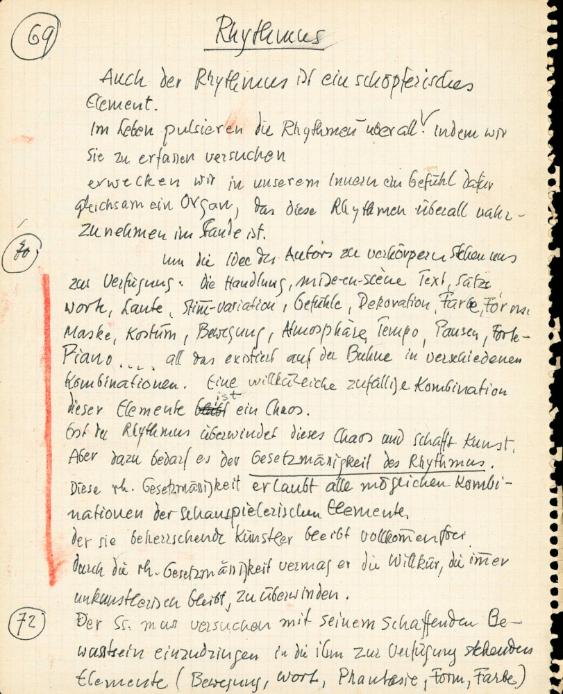 69
Rhythmus
Auch der Rhythmus ist ein schöpferisches
Element.
Im Leben pulsieren die Rhythmen überall. Indem wir
sie zu erfassen versuchen
erwecken wir in unserem Innern ein Gefühl dafür
gleichsam ein Organ, das diese Rhythmen überall wahr-
zunehmen im Stande ist.
70. Um die Idee des Autors zu verkörpern stehen uns
zur Verfügung: die Handlung, mise-en-scène Text, Sätze
Worte, Laute, Stim-variation, Gefühle, Dekoration, Farbe, Formen
Maske, Kostüm, Bewegung, Atmosphäre, Tempo, Pausen, Forte-
Piano.... all das existiert auf der Bühne in verschiedenen
Kombinationen. Eine willkürliche zufällige Kombination
dieser Elemente ist ein Chaos.
Erst der Rhythmus überwindet dieses Chaos und schafft Kunst.
Aber dazu bedarf es der Gesetzmäsigkeit des Rhythmus.
Diese rh. Gesetzmäsigkeit erlaubt alle möglichen Kombi-
nationen der schauspielerischen Elemente.
der sie beherrschende Künstler bleibt vollkommen frei
durch die rh. Gesetzmäsigkeit vermag er die Willkür, die imer
unkünstlerisch bleibt, zu überwinden.
72 Der Ss. mus versuchen mit seinem schaffenden Be-
wustsein einzudringen in die ihm zur Verfügung stehenden
Elemente (Bewegung, Wort, Phantasie, Form, Farbe)